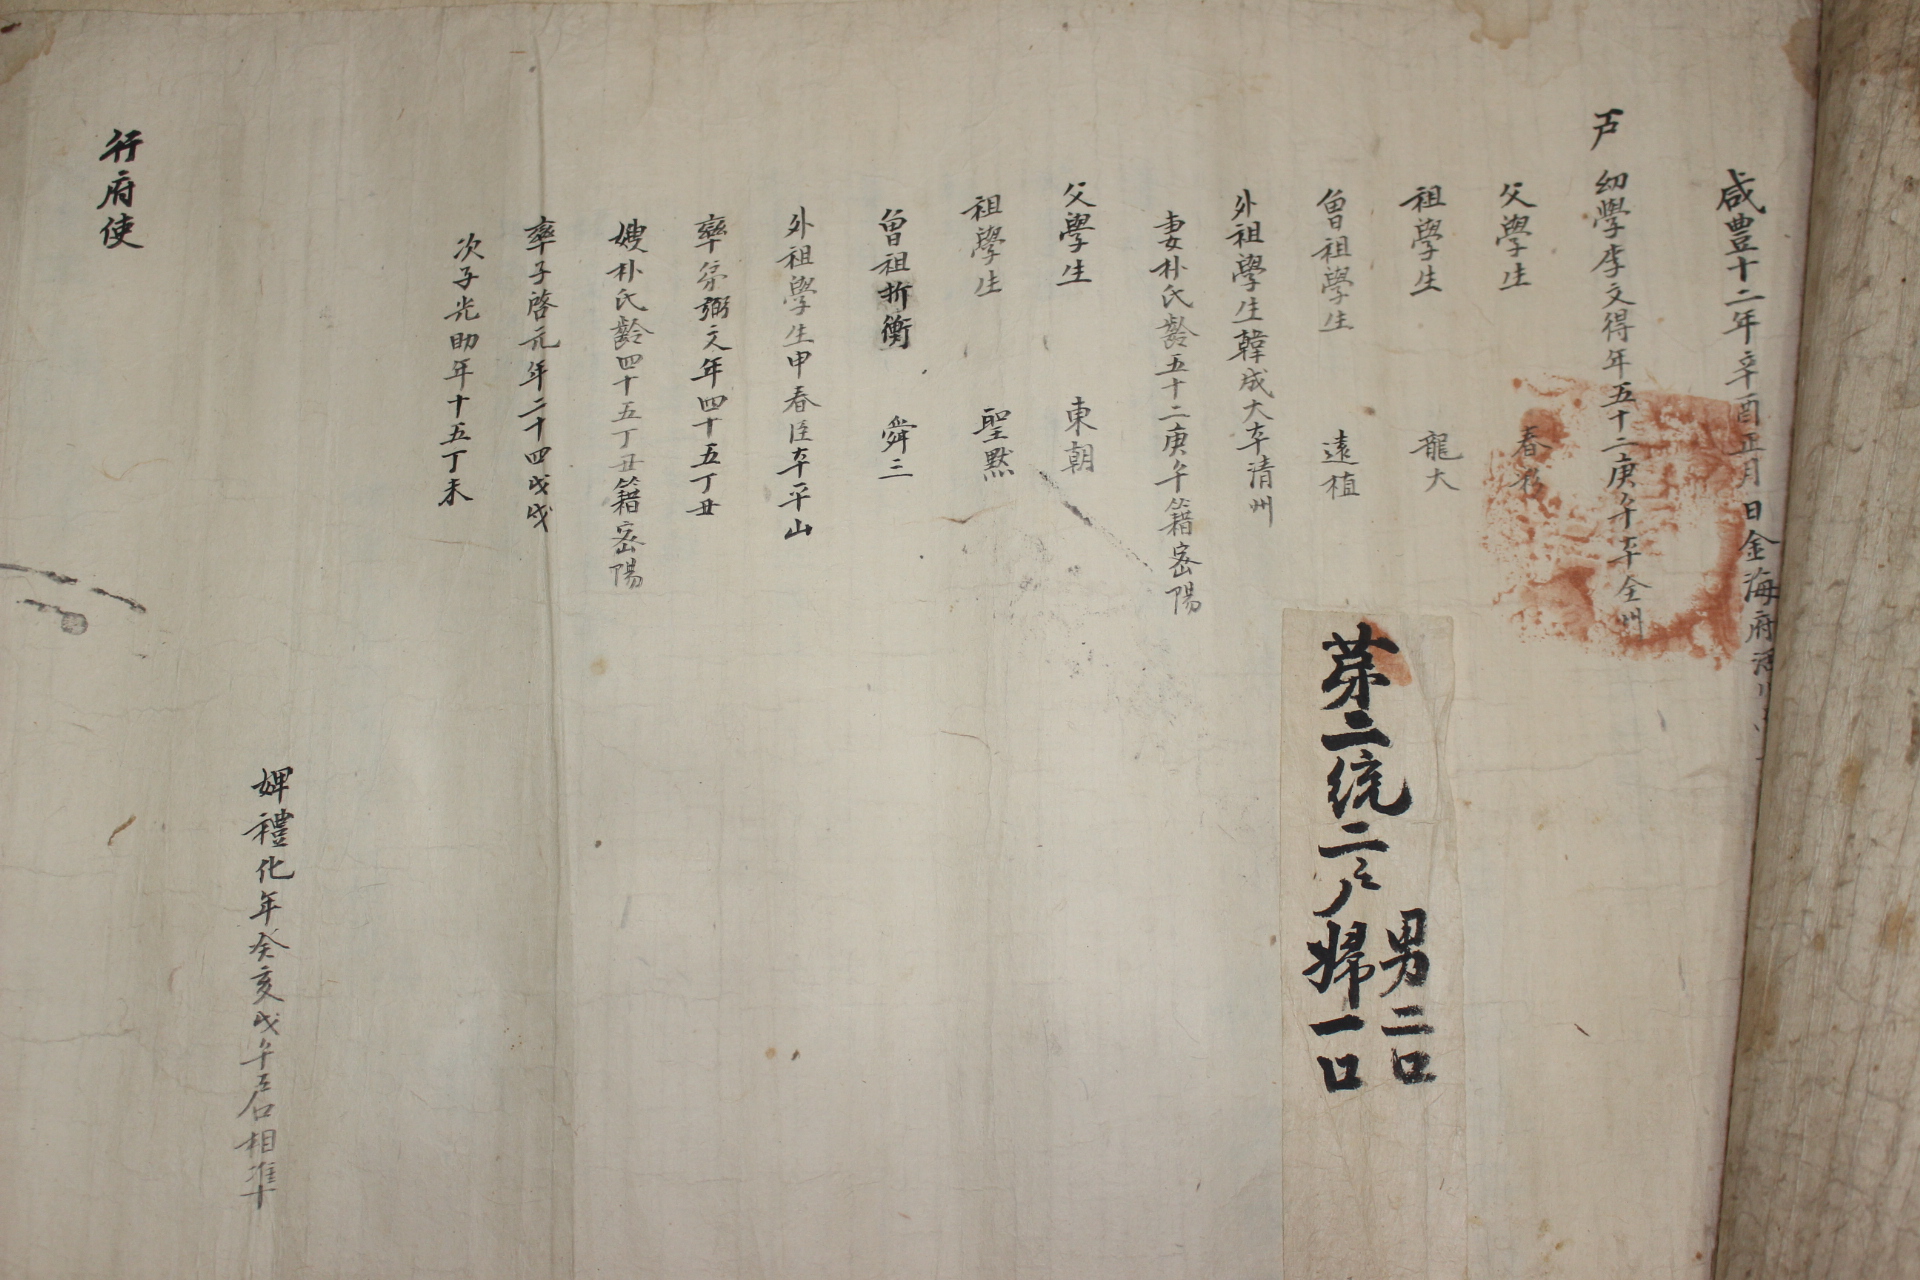 咸豊十二年辛酉正月 日金海府
戶 幼學李文得年五十二庚午本全州
父學生 春
祖學生 龍大
曾祖學生 遠植
外祖學生韓成大本淸州
妻朴氏齡五十二庚午籍密陽
父學生 東朝
祖學生 聖默
曾祖折衝 舜三
外祖學生申春臣本平山
率弟弼文年四十五丁丑
嫂朴氏齡四十五丁丑籍密陽
率子啓元年二十四戊戌
次子光助年十五丁未
婢禮化年癸亥戊午戶口相準
行府使
第二統二戶
男二口
婦一口